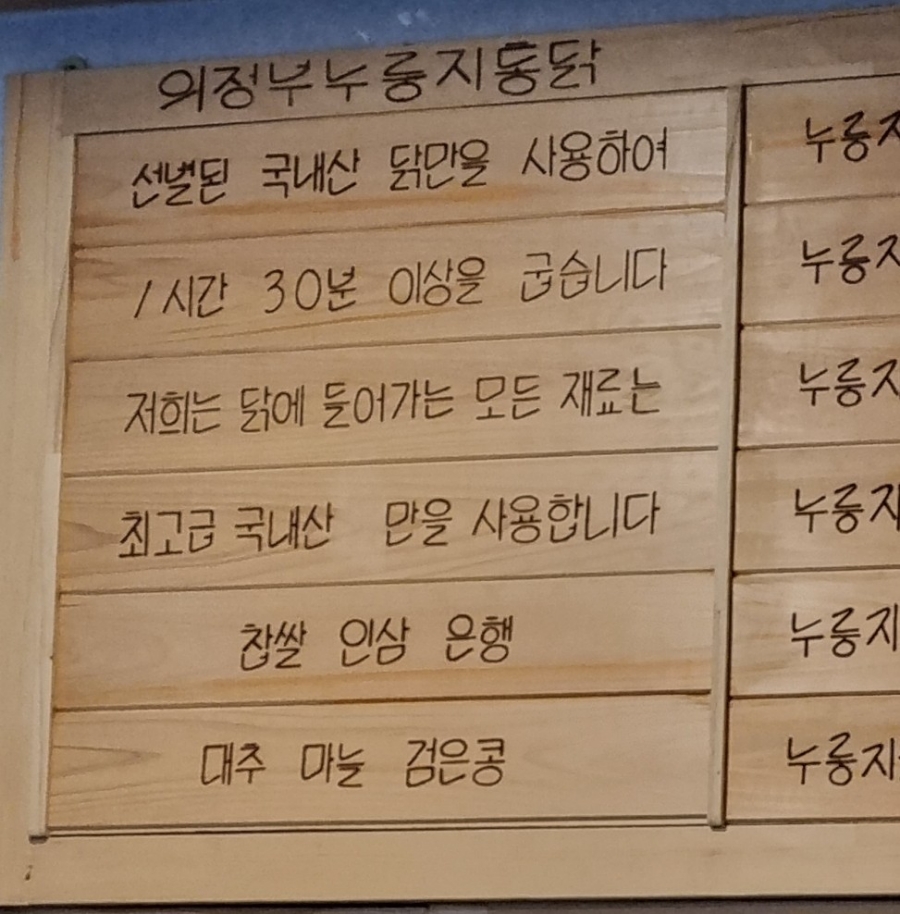 의정부누룽지통닭
선별된 국내산 닭만을 사용하여
1시간 30분 이상을 굽습니다
저희는 닭에 들어가는 모든 재료는
최고급 국내산 만을 사용합니다
찹쌀 인삼 은행
대추 마늘 검은콩
누룽지
누룽지
누룽지
누룽지
누룽지
누룽지